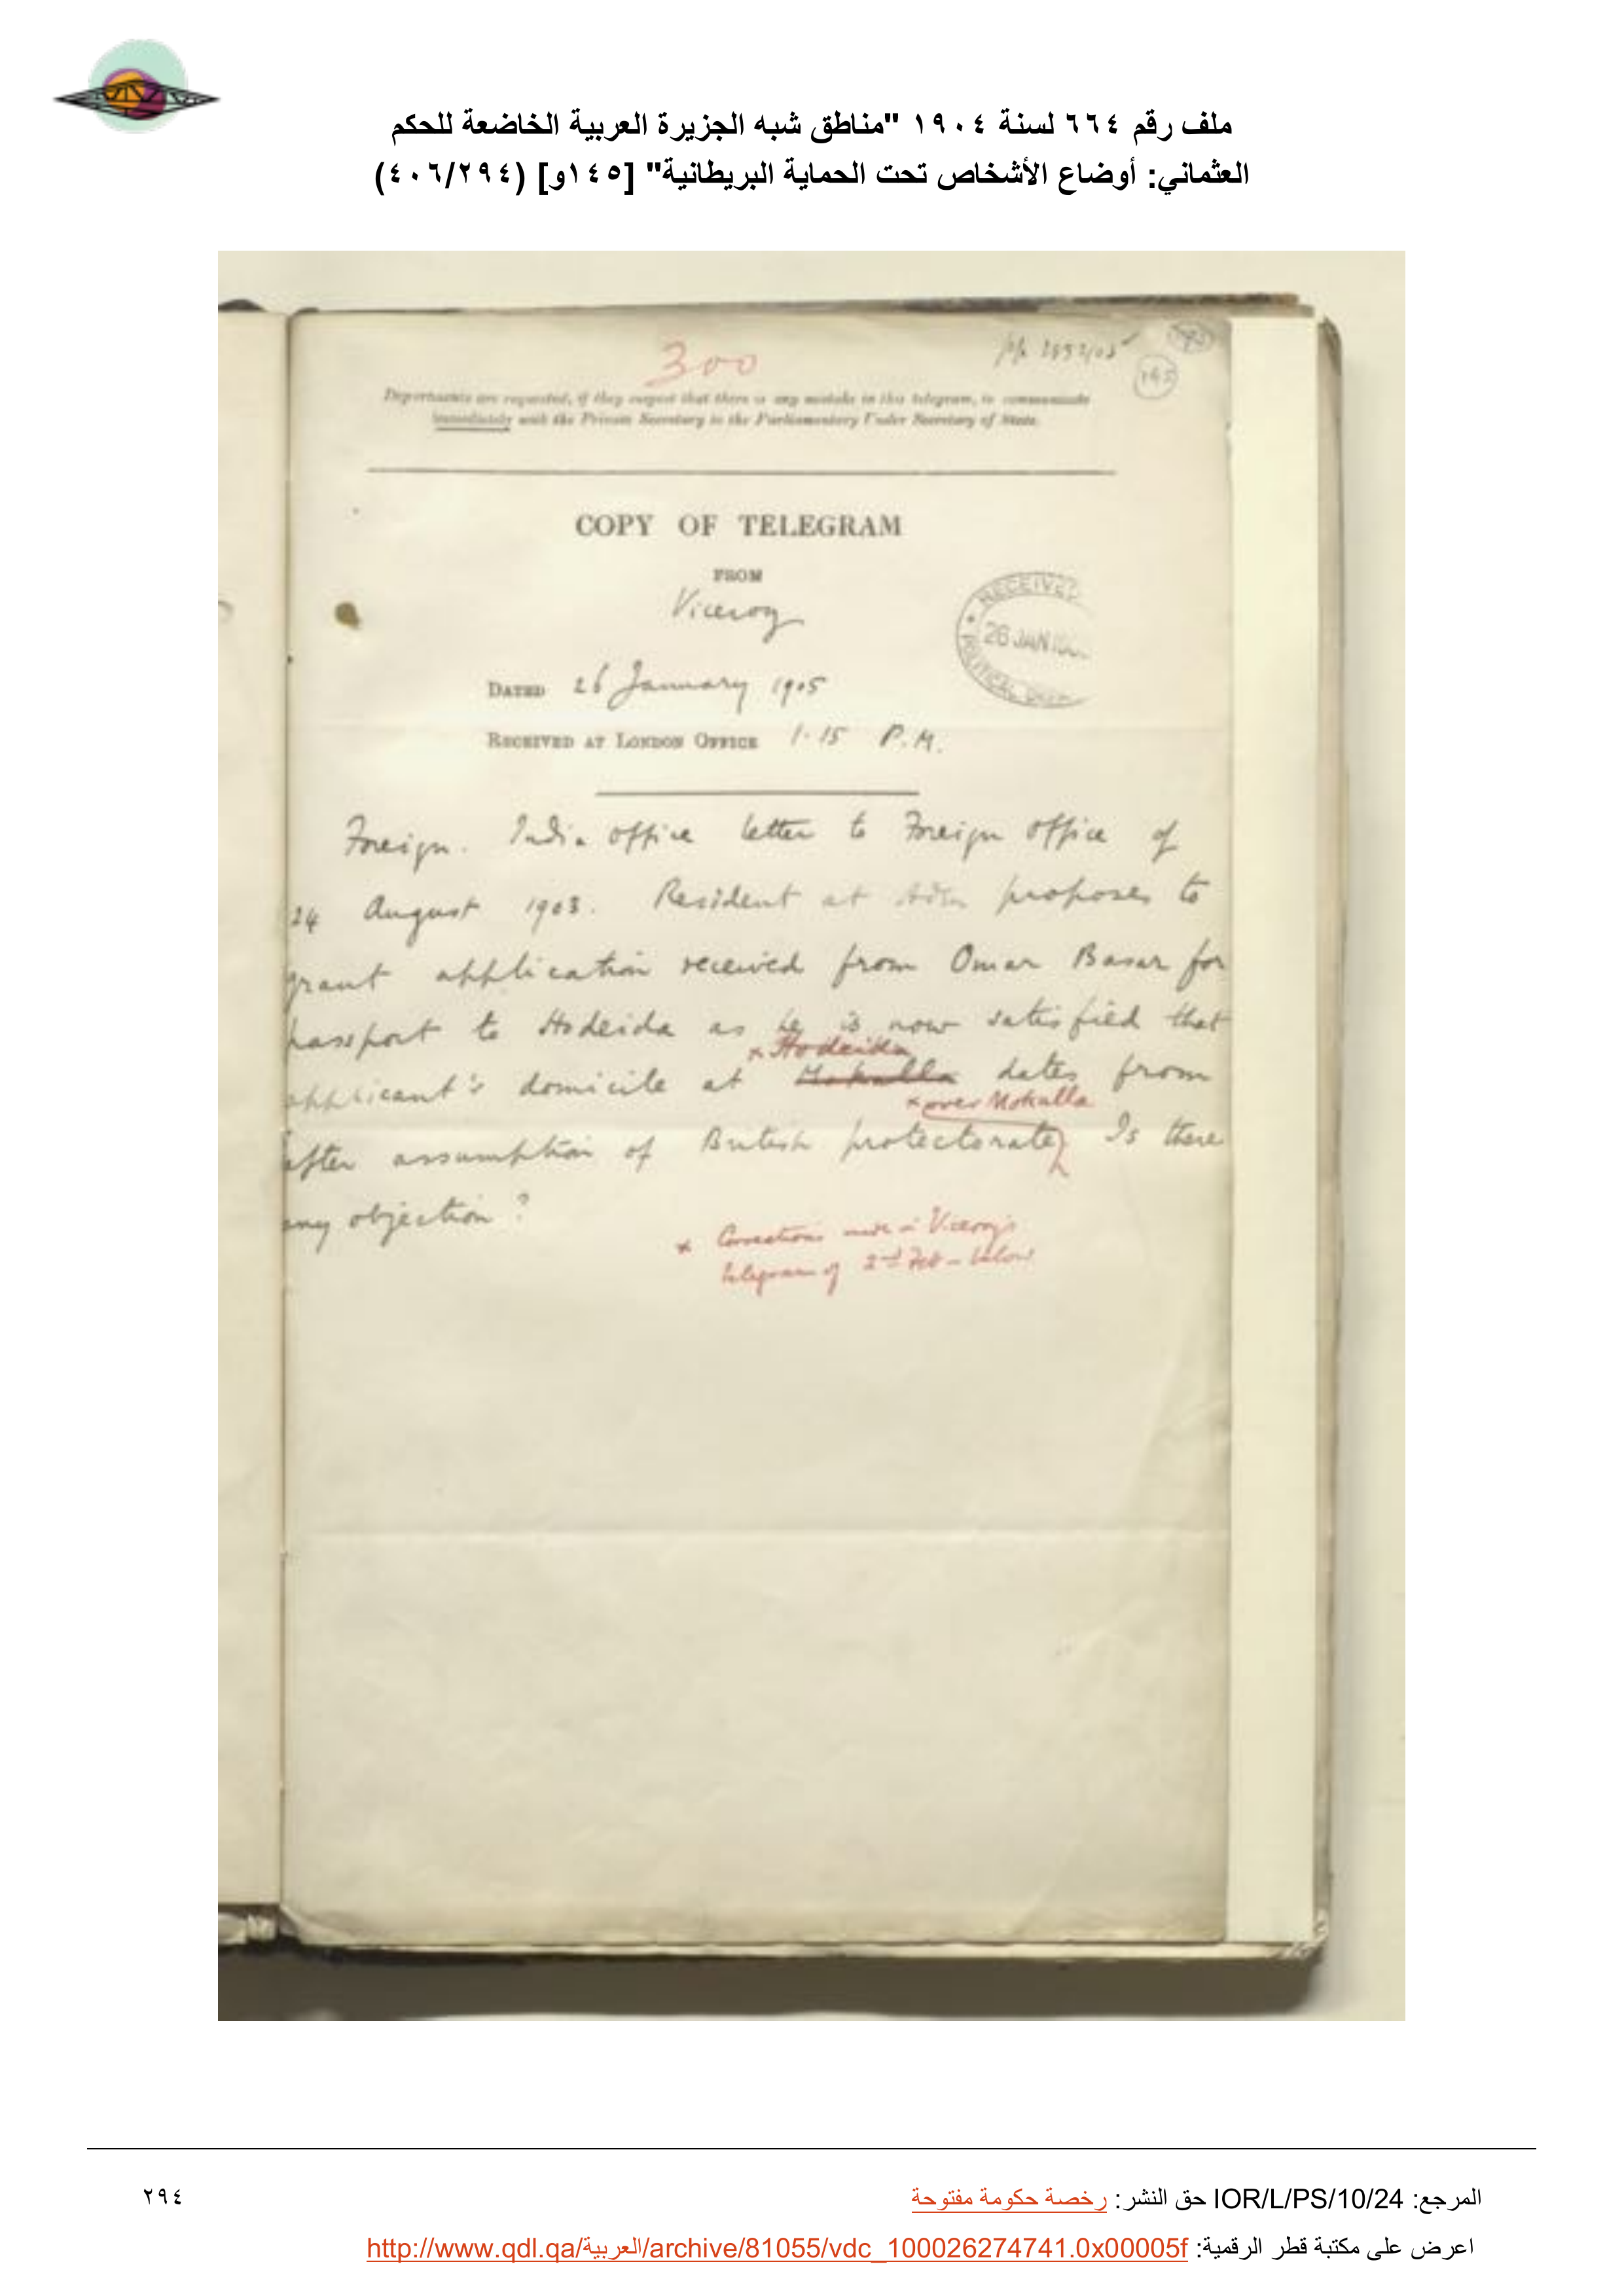 ملف رقم ٦٦٤ لسنة ١٩٠٤ "مناطق شبه الجزيرة العربية الخاضعة للحكم
العثماني: أوضاع الأشخاص تحت الحماية البريطانية" [١٤٥و] (٤٠٦/٢٩٤)
300
145
Departments are requested, if they suspect that there is any mistake in this telegram, to communicate
immediately with the Private Secretary to the Parliamentary Under Secretary of State.
COPY OF TELEGRAM
FROM
Viceroy
RECEIVED
26 JAN
POLITICAL
DATED 26 January 1905
RECEIVED AT LONDON OFFICE 1.15 P.M.
Foreign. India office letter to Foreign office of
24 August 1903. Resident at Aden proposes to
grant application received from Omar Basar for
passport to Hodeida as he is now satisfied that
x Hodeida
applicant's domicile at Mokulla dates from
x over Mokulla
after assumption of British protectorate Is there
any objection?
x Corrections made in Viceroy's
telegram of 2nd Feb - below
المرجع: IOR/L/PS/10/24 حق النشر: رخصة حكومة مفتوحة
٢٩٤
اعرض على مكتبة قطر الرقمية: http://www.qdl.qa/العربية/archive/81055/vdc_100026274741.0x00005f